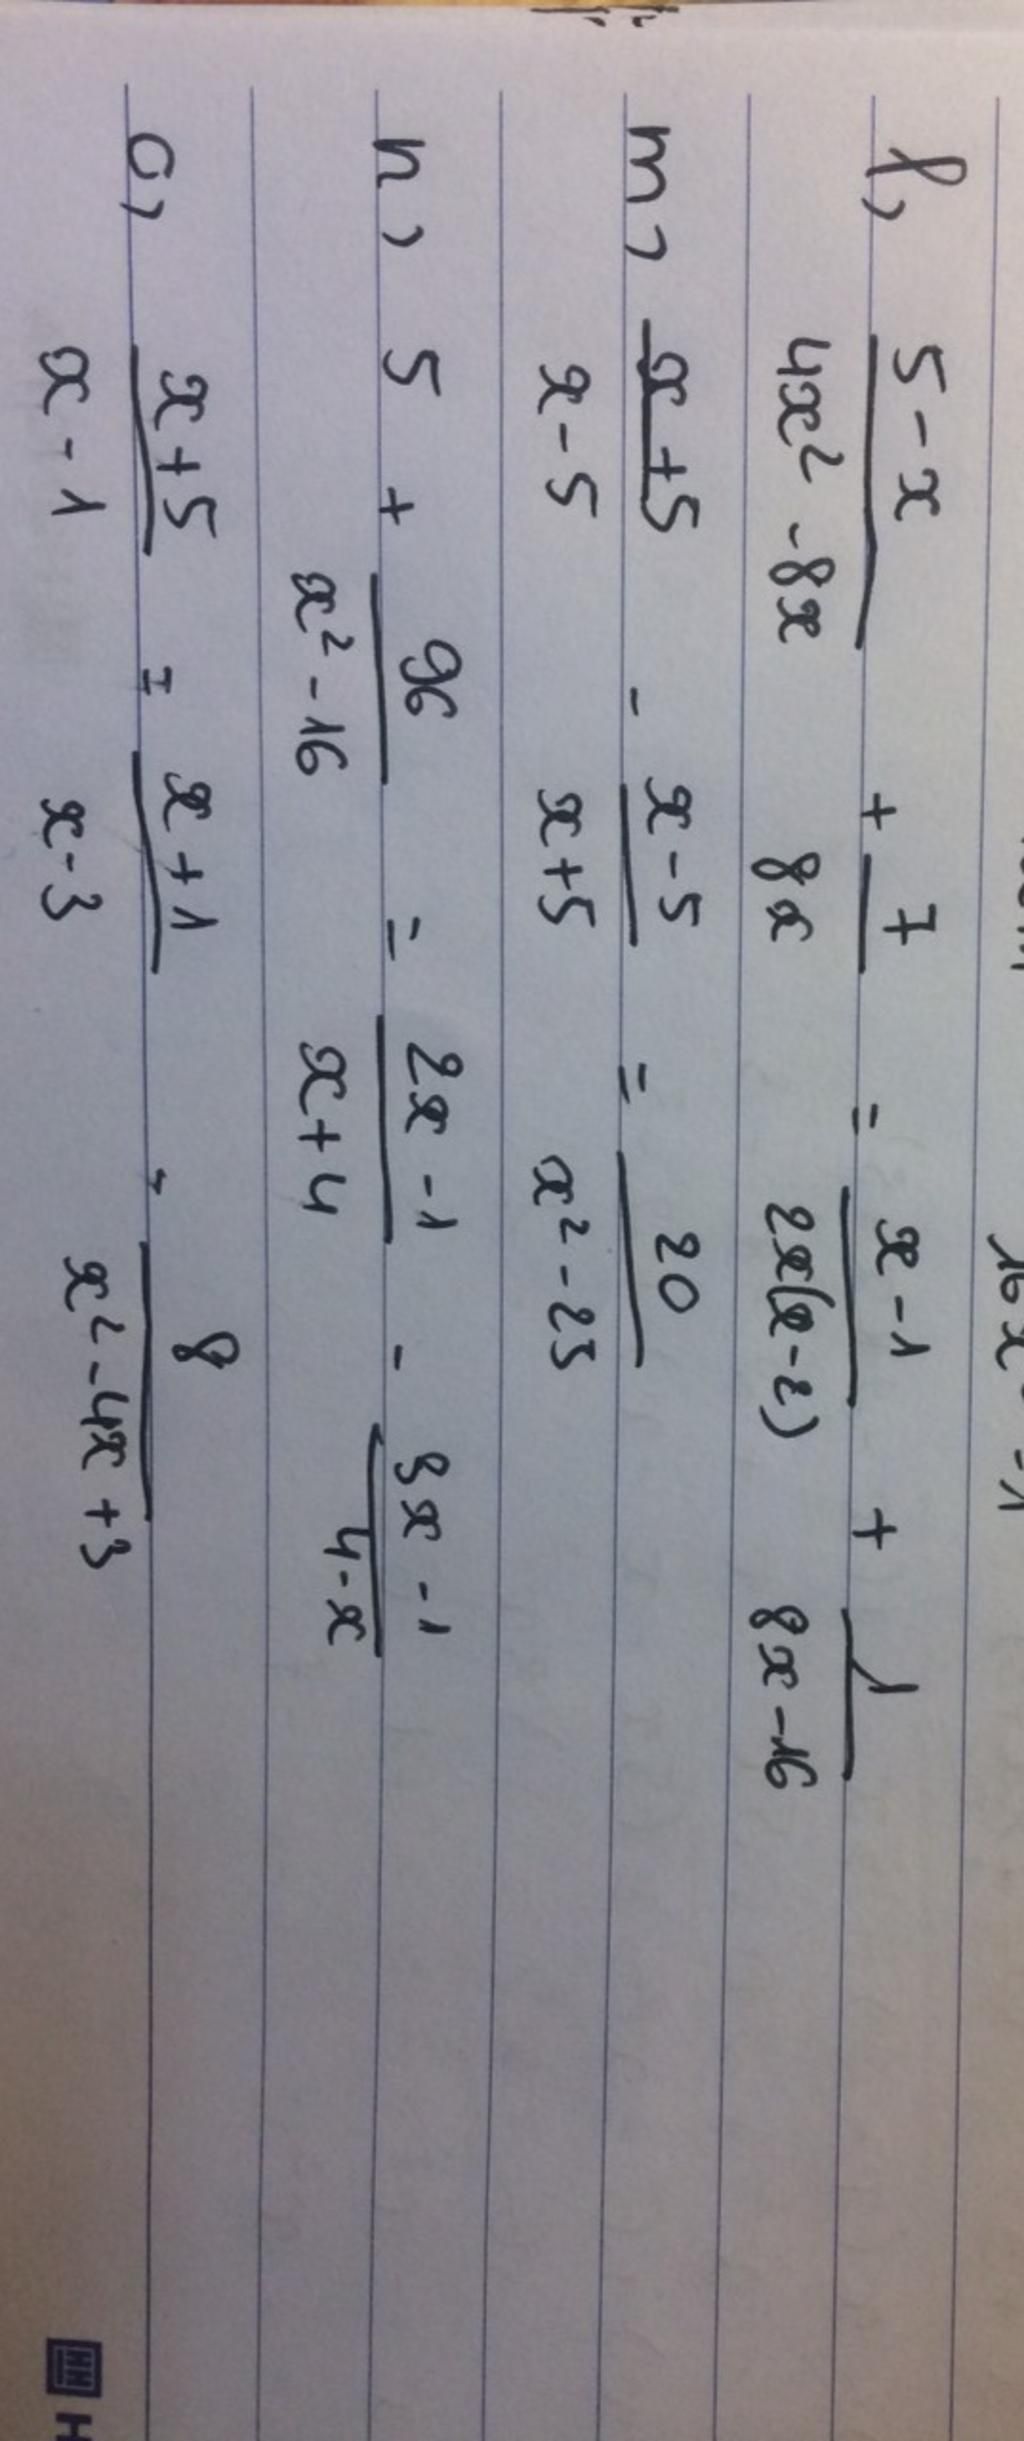 16x² - 1
l, (5 - x)/(4x² - 8x) + 7/(8x) = (x - 1)/(2x(x - 2)) + 1/(8x - 16)
m, (x + 5)/(x - 5) - (x - 5)/(x + 5) = 20/(x² - 25)
n, 5 + 96/(x² - 16) = (2x - 1)/(x + 4) - (3x - 1)/(4 - x)
o, (x + 5)/(x - 1) = (x + 1)/(x - 3) - 8/(x² - 4x + 3)
H